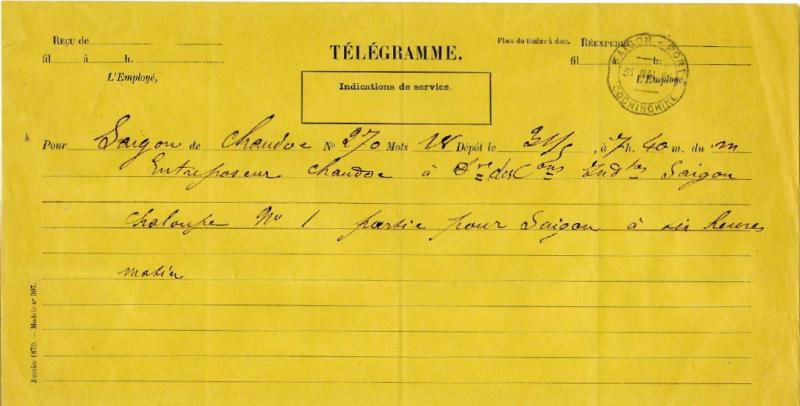 REÇU de
fil à h.
L'Employé,
TÉLÉGRAMME.
Indications de service.
Place du timbre à date.
RÉEXPÉDIÉ
fil h.
L'Employé,
SAIGON - PORT
31 MAI
COCHINCHINE
Pour Saigon de Chaudoc No 270 Mots 18 Dépôt le 31/5 à 7 h. 40 m. du m
Entreposeur Chaudoc à Dre des Cons Indtes Saigon
Chaloupe No 1 partie pour Saigon à six heures
matin
Janvier 1879. — Modèle no 307.